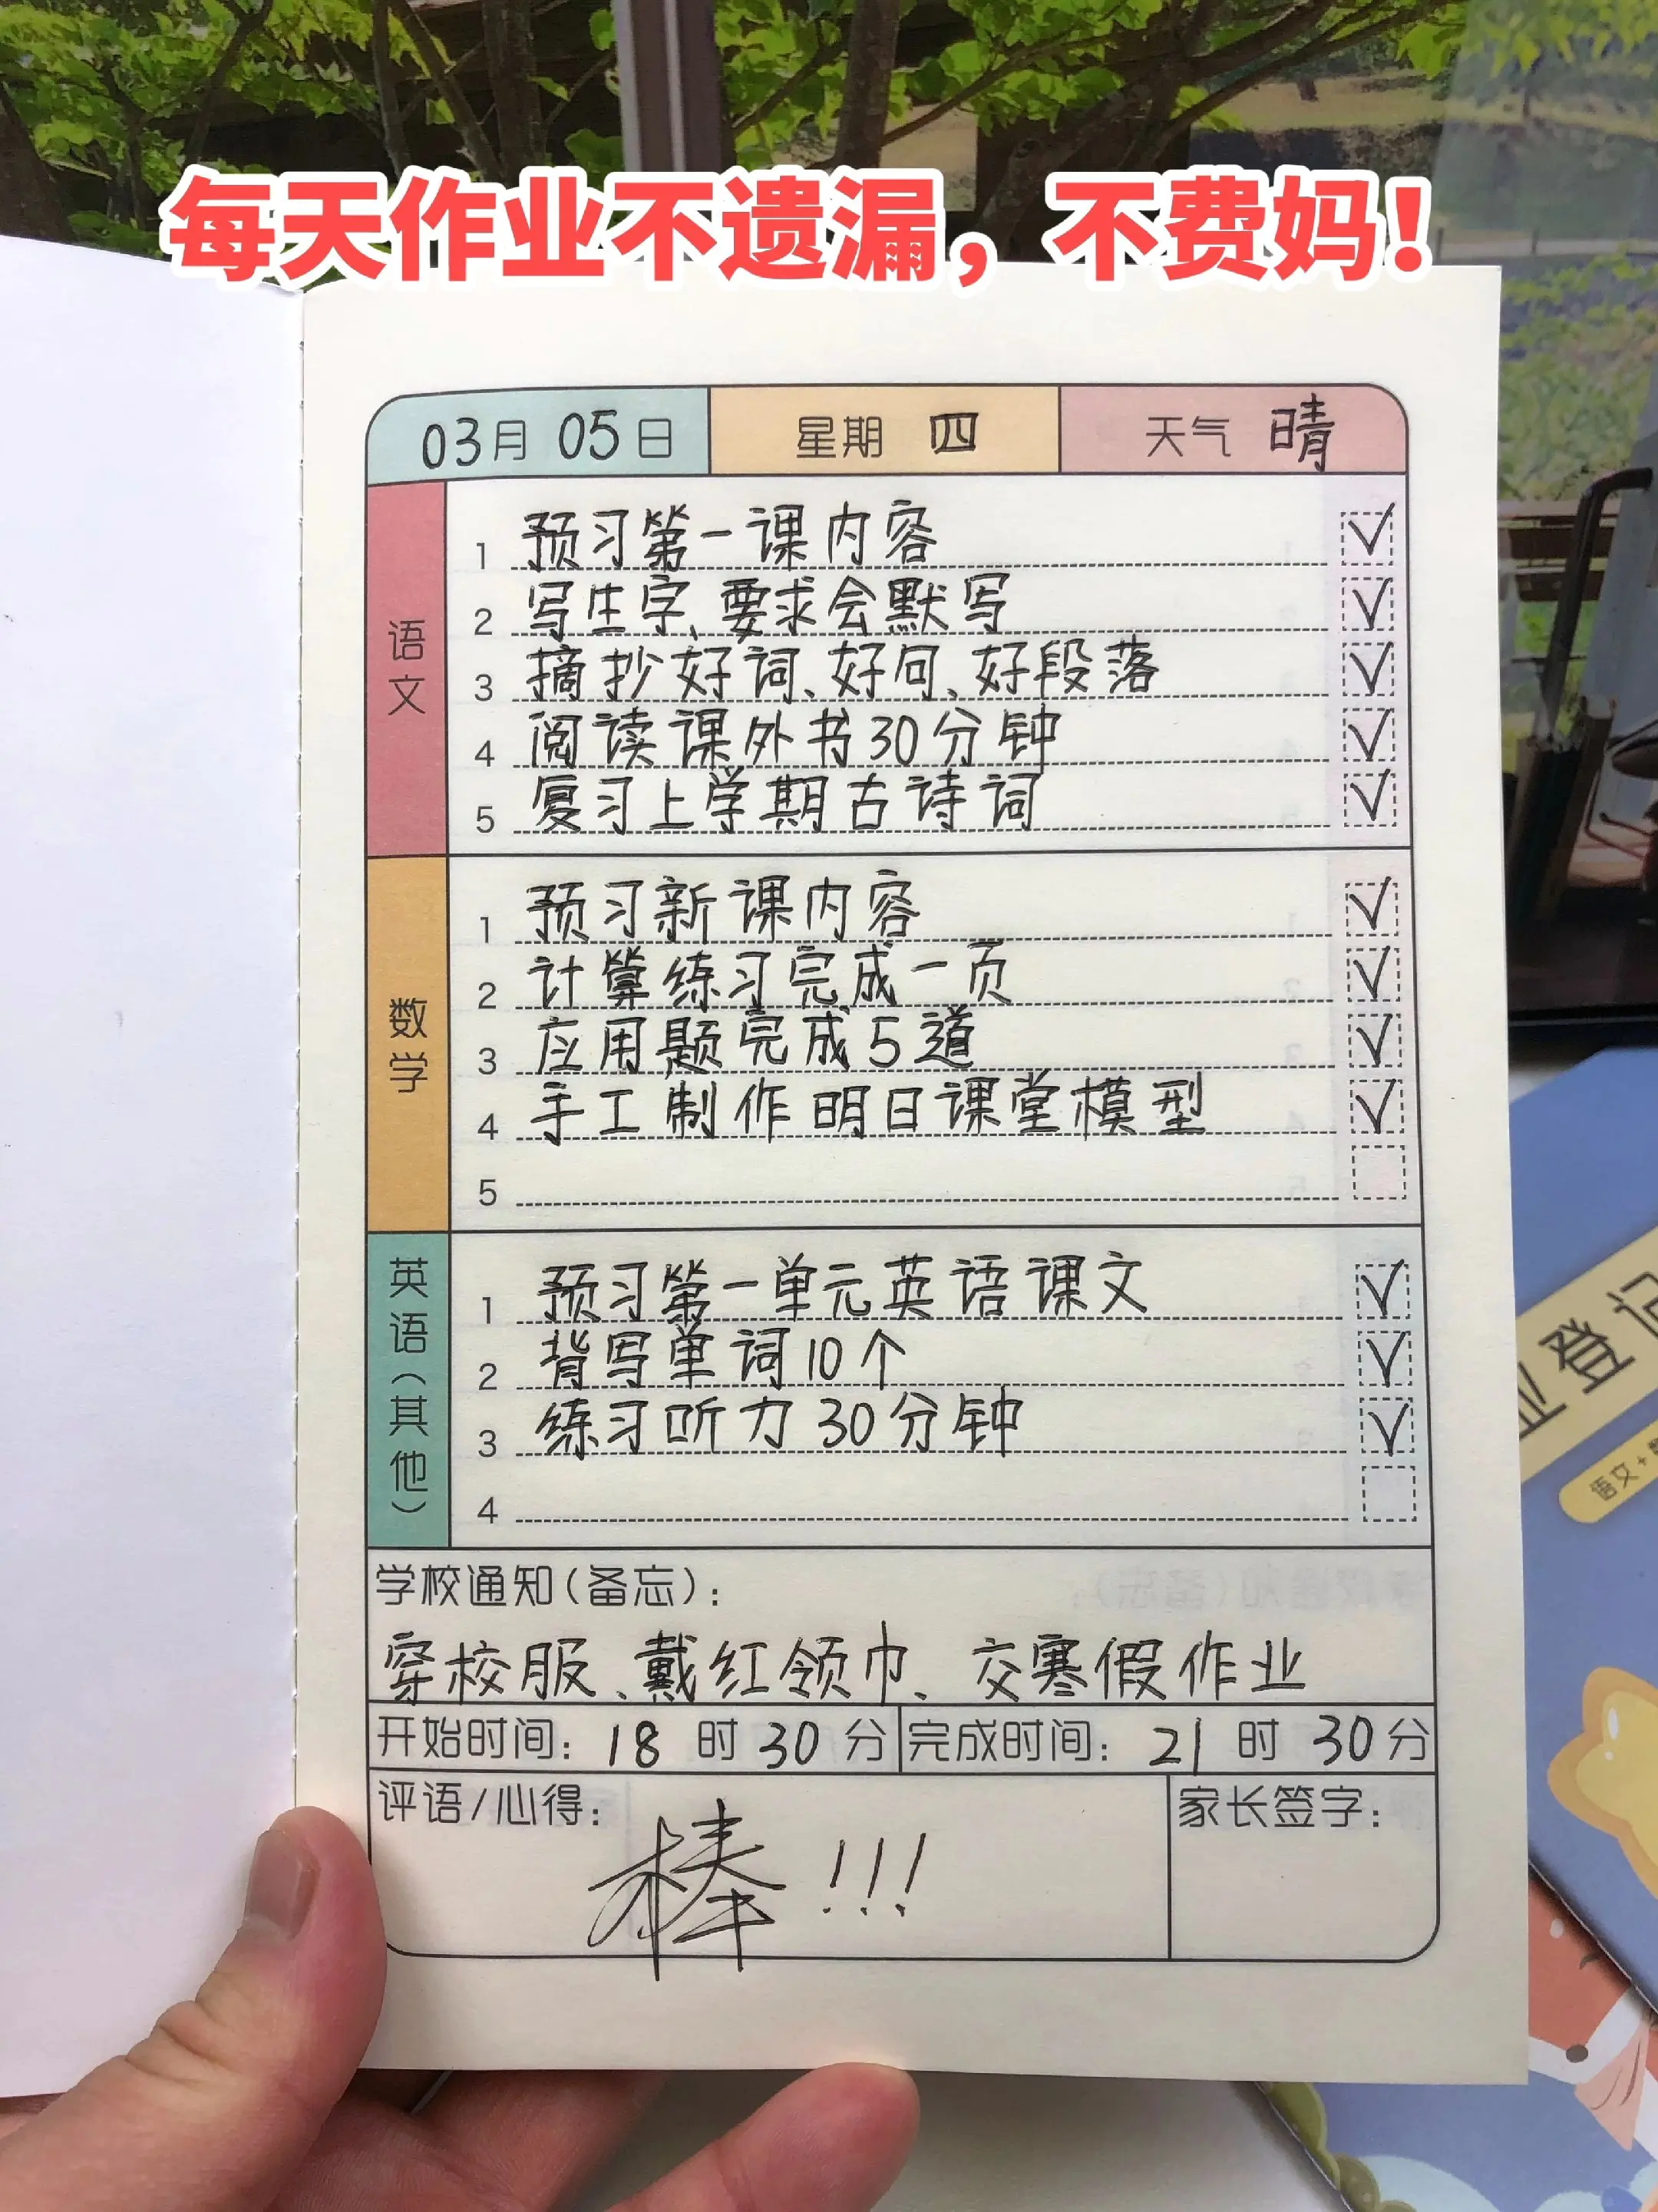 每天作业不遗漏，不费妈！
03月 05日 星期 四 天气 晴
语文
1 预习第一课内容 √
2 写生字、要求会默写 √
3 摘抄好词、好句、好段落 √
4 阅读课外书30分钟 √
5 复习上学期古诗词 √
数学
1 预习新课内容 √
2 计算练习完成一页 √
3 应用题完成5道 √
4 手工制作明日课堂模型 √
5
英语(其他)
1 预习第一单元英语课文 √
2 背写单词10个 √
3 练习听力30分钟 √
4
学校通知(备忘)：
穿校服、戴红领巾、交寒假作业
开始时间：18时30分 完成时间：21时30分
评语/心得： 家长签字：
棒!!!
业登记
语文+